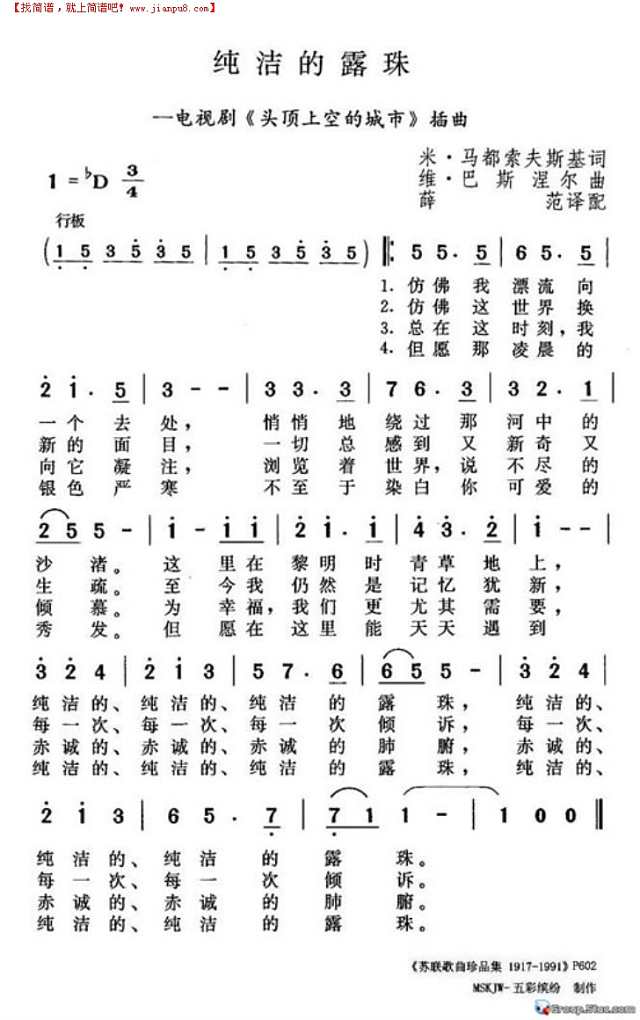 【找简谱，就上简谱吧! www.jianpu8.com】
纯洁的露珠
—电视剧《头顶上空的城市》插曲
米·马都索夫斯基词
1=♭D 3/4
维·巴斯涅尔曲
薛范译配
行板
(1 5 3 5 3 5 | 1 5 3 5 3 5) ‖: 5 5. 5 | 6 5. 5 |
1. 仿佛我漂流向
2. 仿佛这世界换
3. 总在这时刻，我
4. 但愿那凌晨的
2 1. 5 | 3 - - | 3 3. 3 | 7 6. 3 | 3 2. 1 |
一个去处，悄悄地绕过那河中的
新的面目，一切总感到又新奇又
向它凝注，浏览着世界，说不尽的
银色严寒不至于染白你可爱的
2 5 5 - | 1 - 1 1 | 2 1. 1 | 4 3. 2 | 1 - - |
沙渚。这里在黎明时青草地上，
生疏。至今我仍然是记忆犹新，
倾慕。为幸福，我们更尤其需要，
秀发。但愿在这里能天天遇到
3 2 4 | 2 1 3 | 5 7. 6 | 6 5 5 - | 3 2 4 |
纯洁的、纯洁的、纯洁的露珠，纯洁的、
每一次、每一次、每一次倾诉，每一次、
赤诚的、赤诚的、赤诚的肺腑，赤诚的、
纯洁的、纯洁的、纯洁的露珠，纯洁的、
2 1 3 | 6 5. 7 | 7 1 1 - | 1 0 0 ‖
纯洁的、纯洁的露珠。
每一次、每一次倾诉。
赤诚的、赤诚的肺腑。
纯洁的、纯洁的露珠。
《苏联歌曲珍品集 1917-1991》P602
MSKJW-五彩缤纷 制作